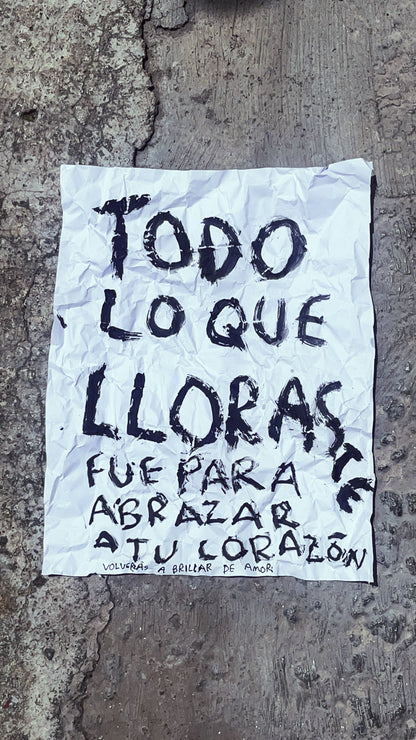 TODO
LO QUE
LLORASTE
FUE PARA
ABRAZAR
A TU CORAZÓN
VOLVERÁS A BRILLAR DE AMOR